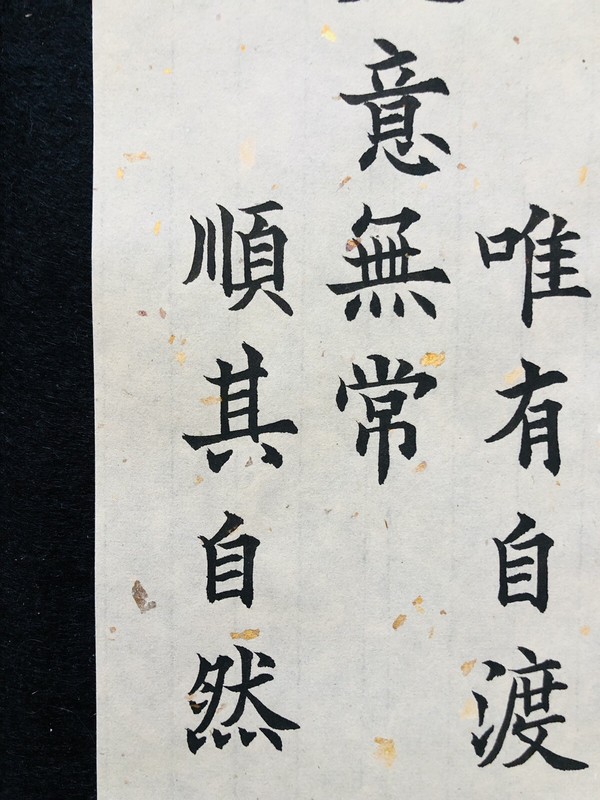 唯有自渡
意無常
順其自然